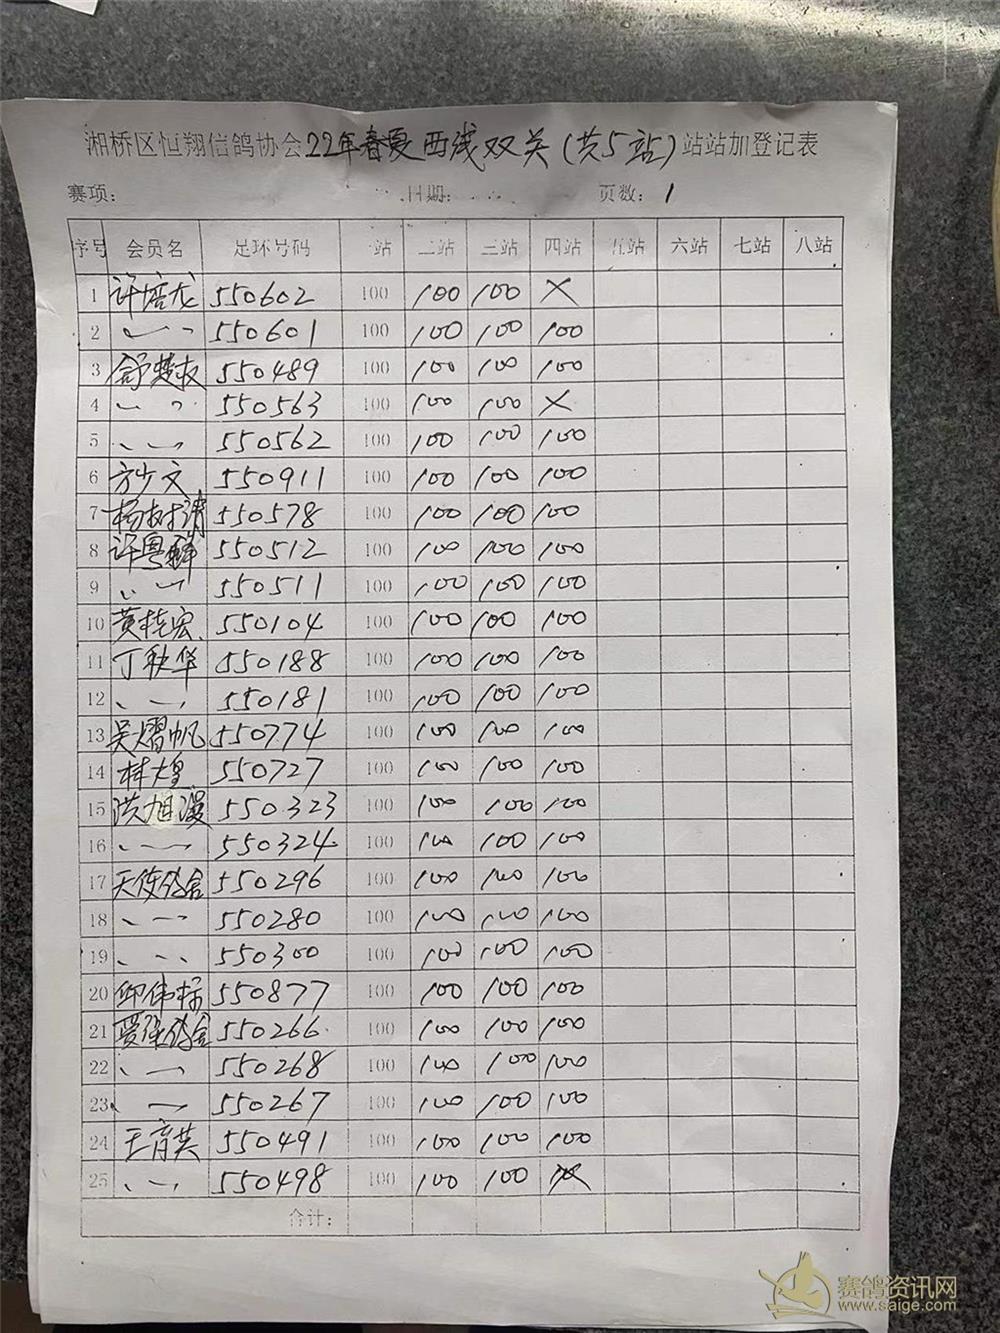 湘桥区恒翔信鸽协会22年春夏西线双关(共5站)站站加登记表
赛项: 日期: 页数: 1
序号 会员名 足环号码 一站 二站 三站 四站 五站 六站 七站 八站
1 许培龙 550602 100 100 100 ×
2 〃 550601 100 100 100 100
3 舒楚友 550489 100 100 100 100
4 〃 550563 100 100 100 ×
5 〃 550562 100 100 100 100
6 方少文 550911 100 100 100 100
7 杨树清 550578 100 100 100 100
8 许粤 550512 100 100 100 100
9 〃 550511 100 100 100 100
10 黄桂宏 550104 100 100 100 100
11 丁秋华 550188 100 100 100 100
12 〃 550181 100 100 100 100
13 吴熠帆 550774 100 100 100 100
14 林大皇 550727 100 100 100 100
15 洪旭漫 550323 100 100 100 100
16 〃 550324 100 100 100 100
17 天使鸽舍 550296 100 100 100 100
18 〃 550280 100 100 100 100
19 〃 550300 100 100 100 100
20 邱伟标 550877 100 100 100 100
21 鸽舍 550266 100 100 100 100
22 〃 550268 100 100 100 100
23 〃 550267 100 100 100 100
24 王育英 550491 100 100 100 100
25 〃 550498 100 100 100 ×
合计:
赛鸽资讯网
www.saige.com